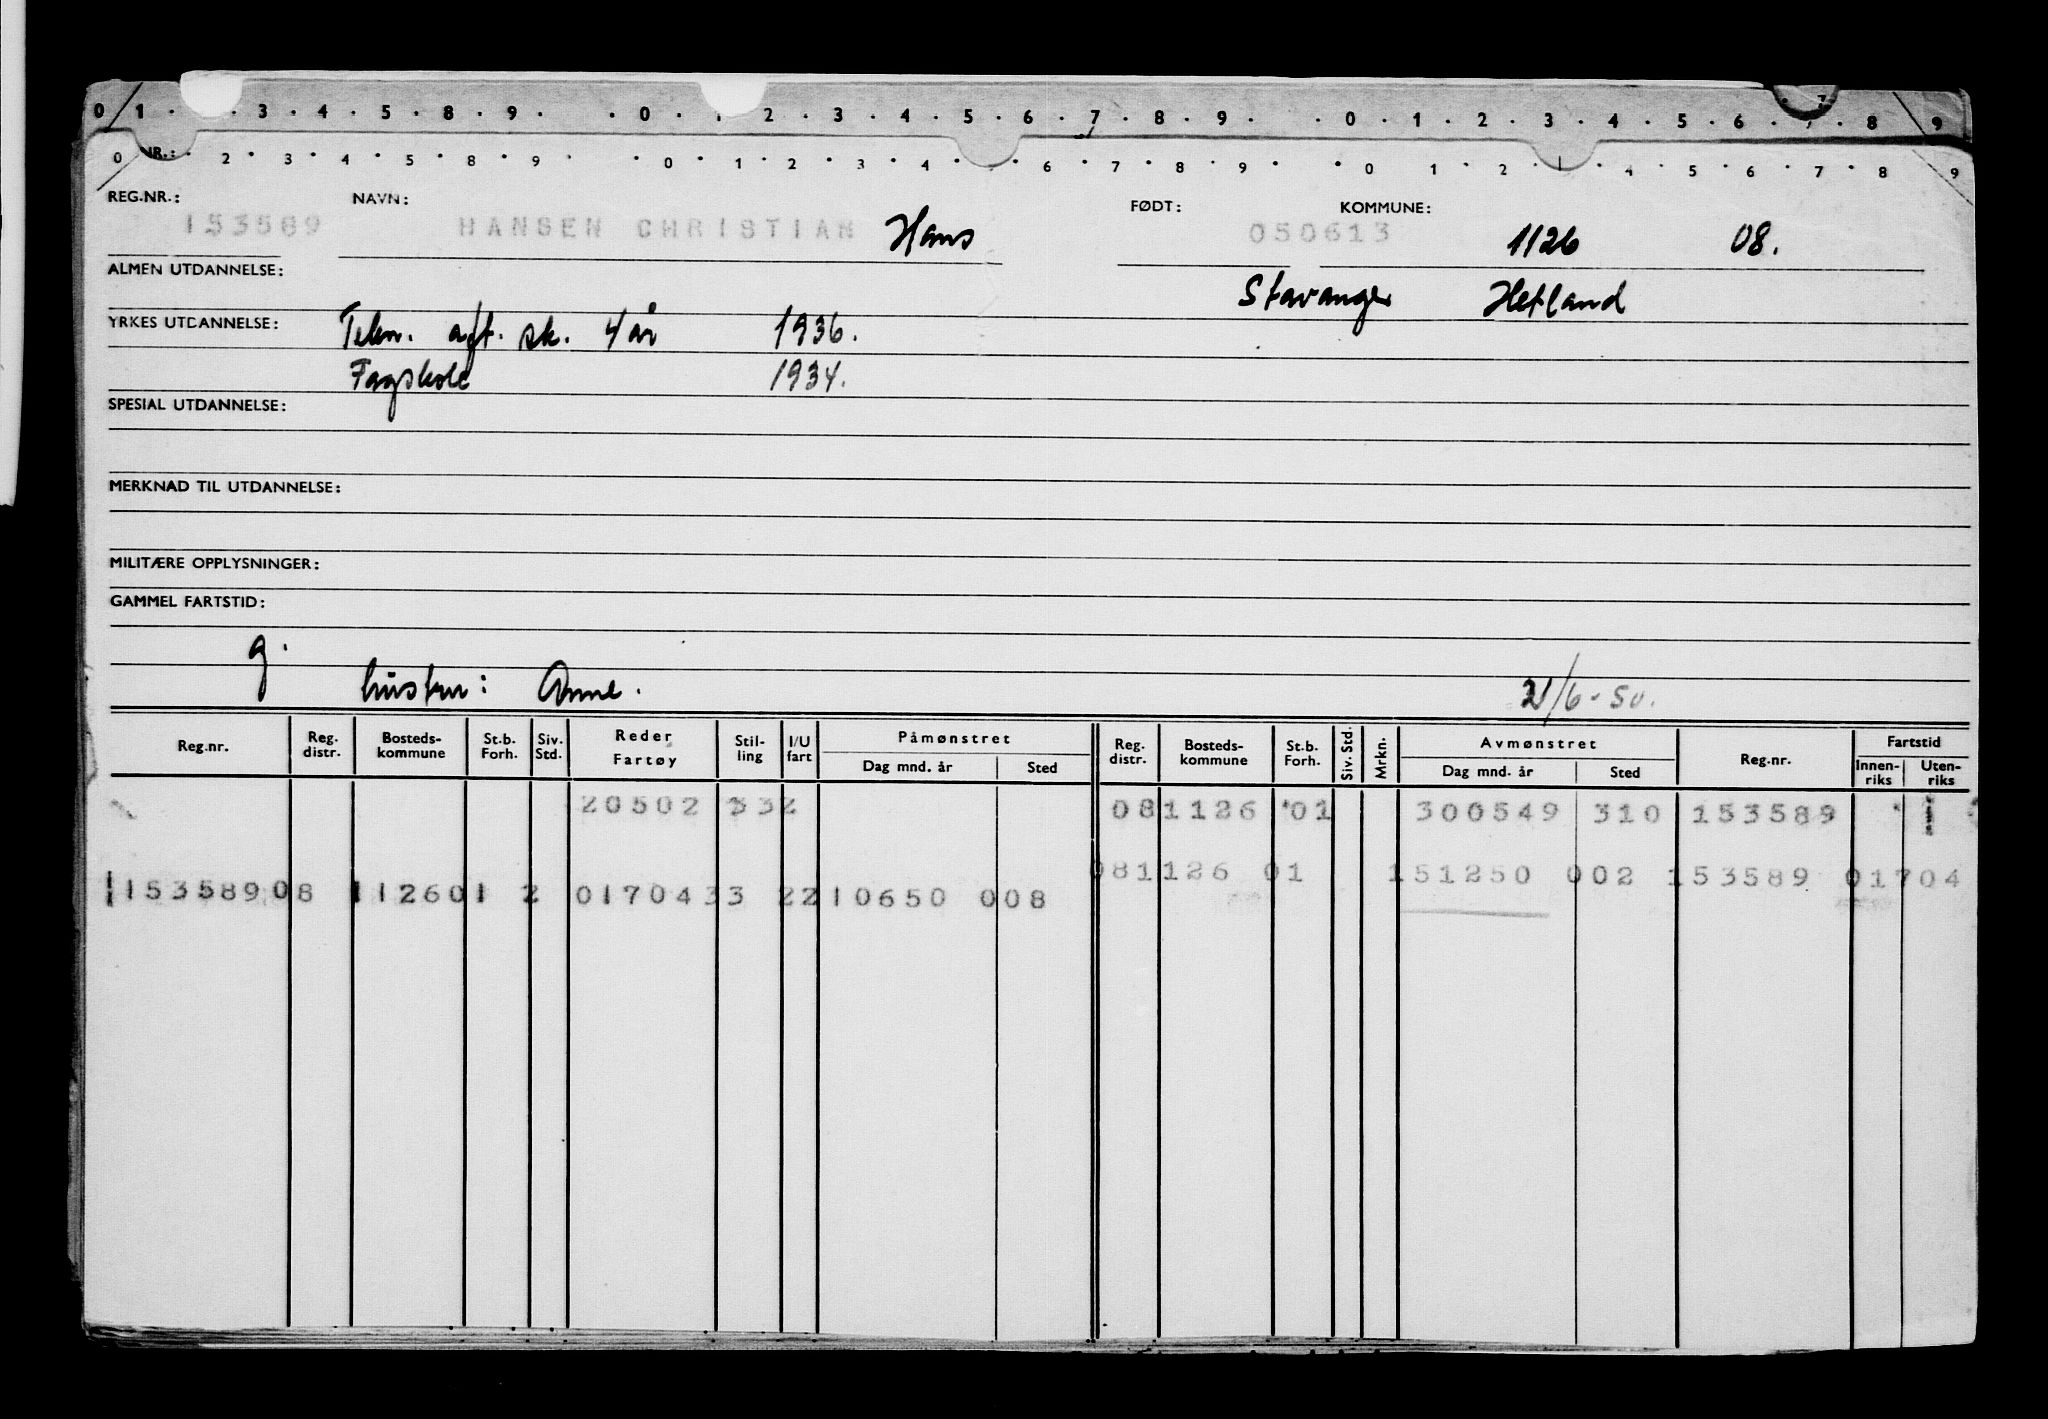 0 1 · · 3 · 4 · 5 · 8 · 9 · · 0 · 1 2 · 3 · 4 · 5 · 6 · 7 · 8 · 9 · · 0 · 1 · 2 · 3 · 4 · 5 · 6 · 7 · 8 9
0 NR.: · 2 · 3 · 4 · 5 · 8 · 9 · · 0 · 1 · 2 · 3 · 4 · · 6 · 7 · 8 · 9 · · 0 1 · 2 · 4 · 5 · 6 · 7 · 8 9
REG.NR.: NAVN: FØDT: KOMMUNE:
153589 HANSEN CHRISTIAN Hans 050613 1126 08.
ALMEN UTDANNELSE:
Stavanger Hetland
YRKES UTDANNELSE: Tekn. aft. sk. 4 år 1936.
Fagskole 1934.
SPESIAL UTDANNELSE:
MERKNAD TIL UTDANNELSE:
MILITÆRE OPPLYSNINGER:
GAMMEL FARTSTID:
g.
hustru: Anne. 21/6-50.
Reg.nr. Reg. distr. Bosteds-kommune St.b. Forh. Siv. Std. Reder Fartøy Stil-ling I/U fart Påmønstret Dag mnd. år Sted Reg. distr. Bosteds-kommune St.b. Forh. Siv. Std. Mrkn. Avmønstret Dag mnd. år Sted Reg.nr. Fartstid Innen-riks Uten-riks
20502 332 081126 01 300549 310 153589
081126 01 151250 002 153589 01704
15358908 112601 2 0170433 2210650 008